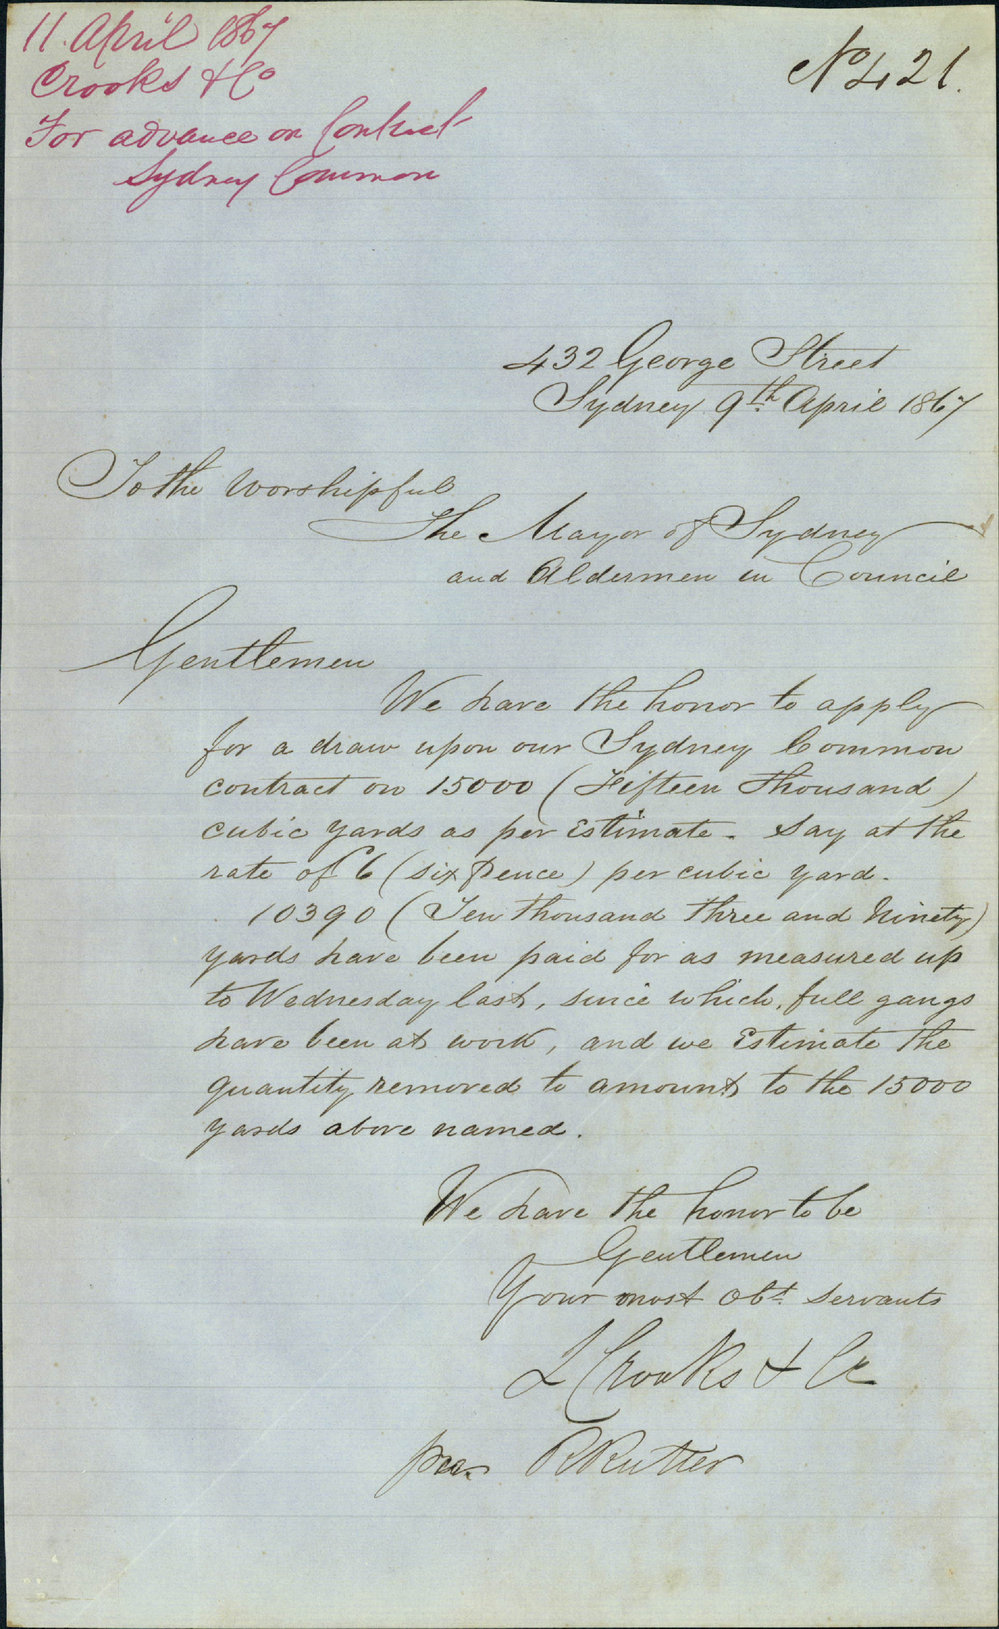 11. April 1867
Crooks & Co
For advance on Contract
Sydney Common
No 421.
432 George Street
Sydney 9th April 1867
To the Worshipful
The Mayor of Sydney
and Aldermen in Council
Gentlemen
We have the honor to apply
for a draw upon our Sydney Common
contract on 15000 (Fifteen Thousand)
cubic yards as per Estimate - Say at the
rate of 6 (six Pence) per cubic yard.
10390 (Ten thousand three and Ninety)
yards have been paid for as measured up
to Wednesday last, since which, full gangs
have been at work, and we Estimate the
quantity removed to amount to the 15000
yards above named.
We have the honor to be
Gentlemen
Your most obt. servants
L Crooks & Co
R Rutter